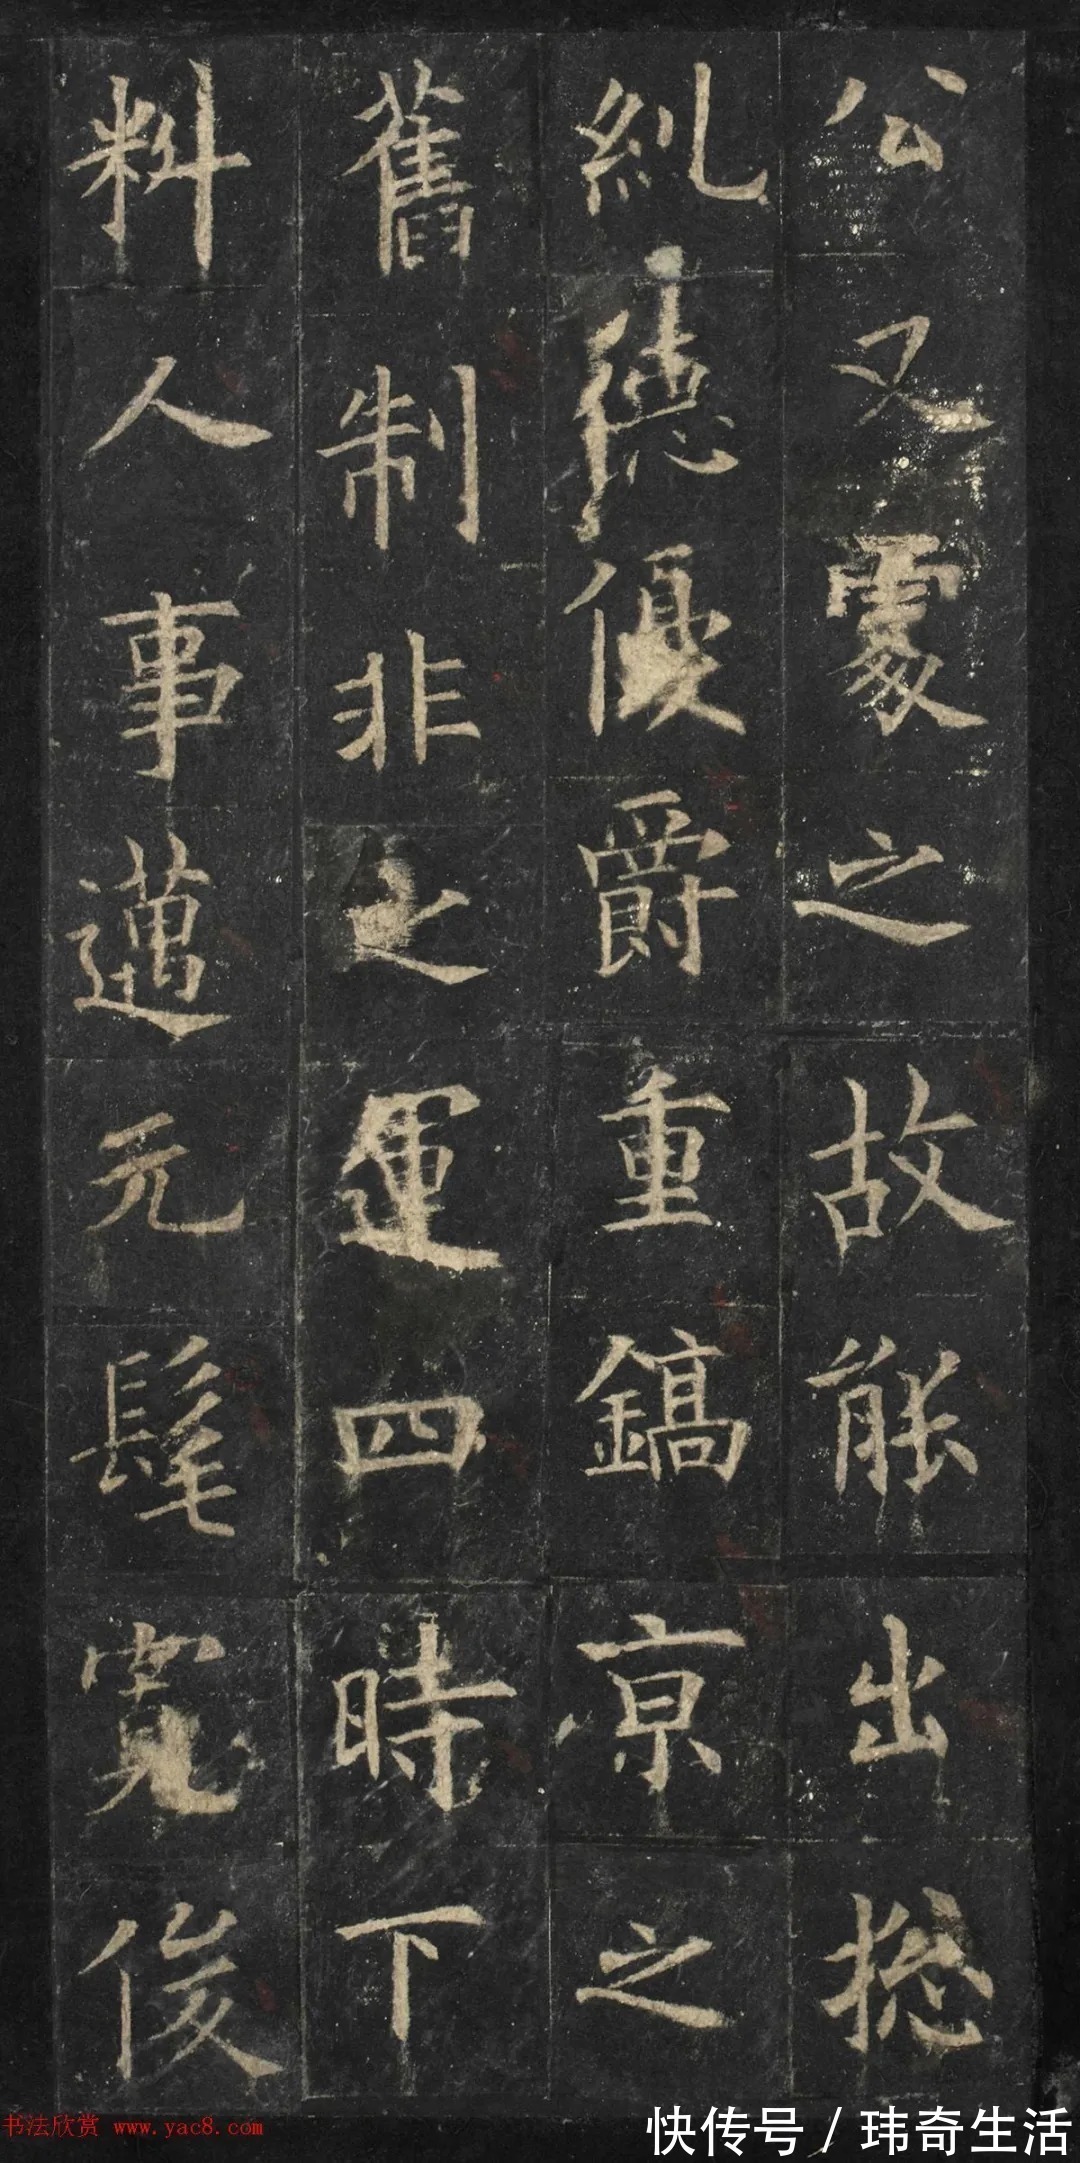 公又處之故能出摠
糺德優爵重鎬京之
舊制非之運四時下
料人事邁元髦寛俊
书法欣赏 www.yac8.com
快传号 / 玮奇生活